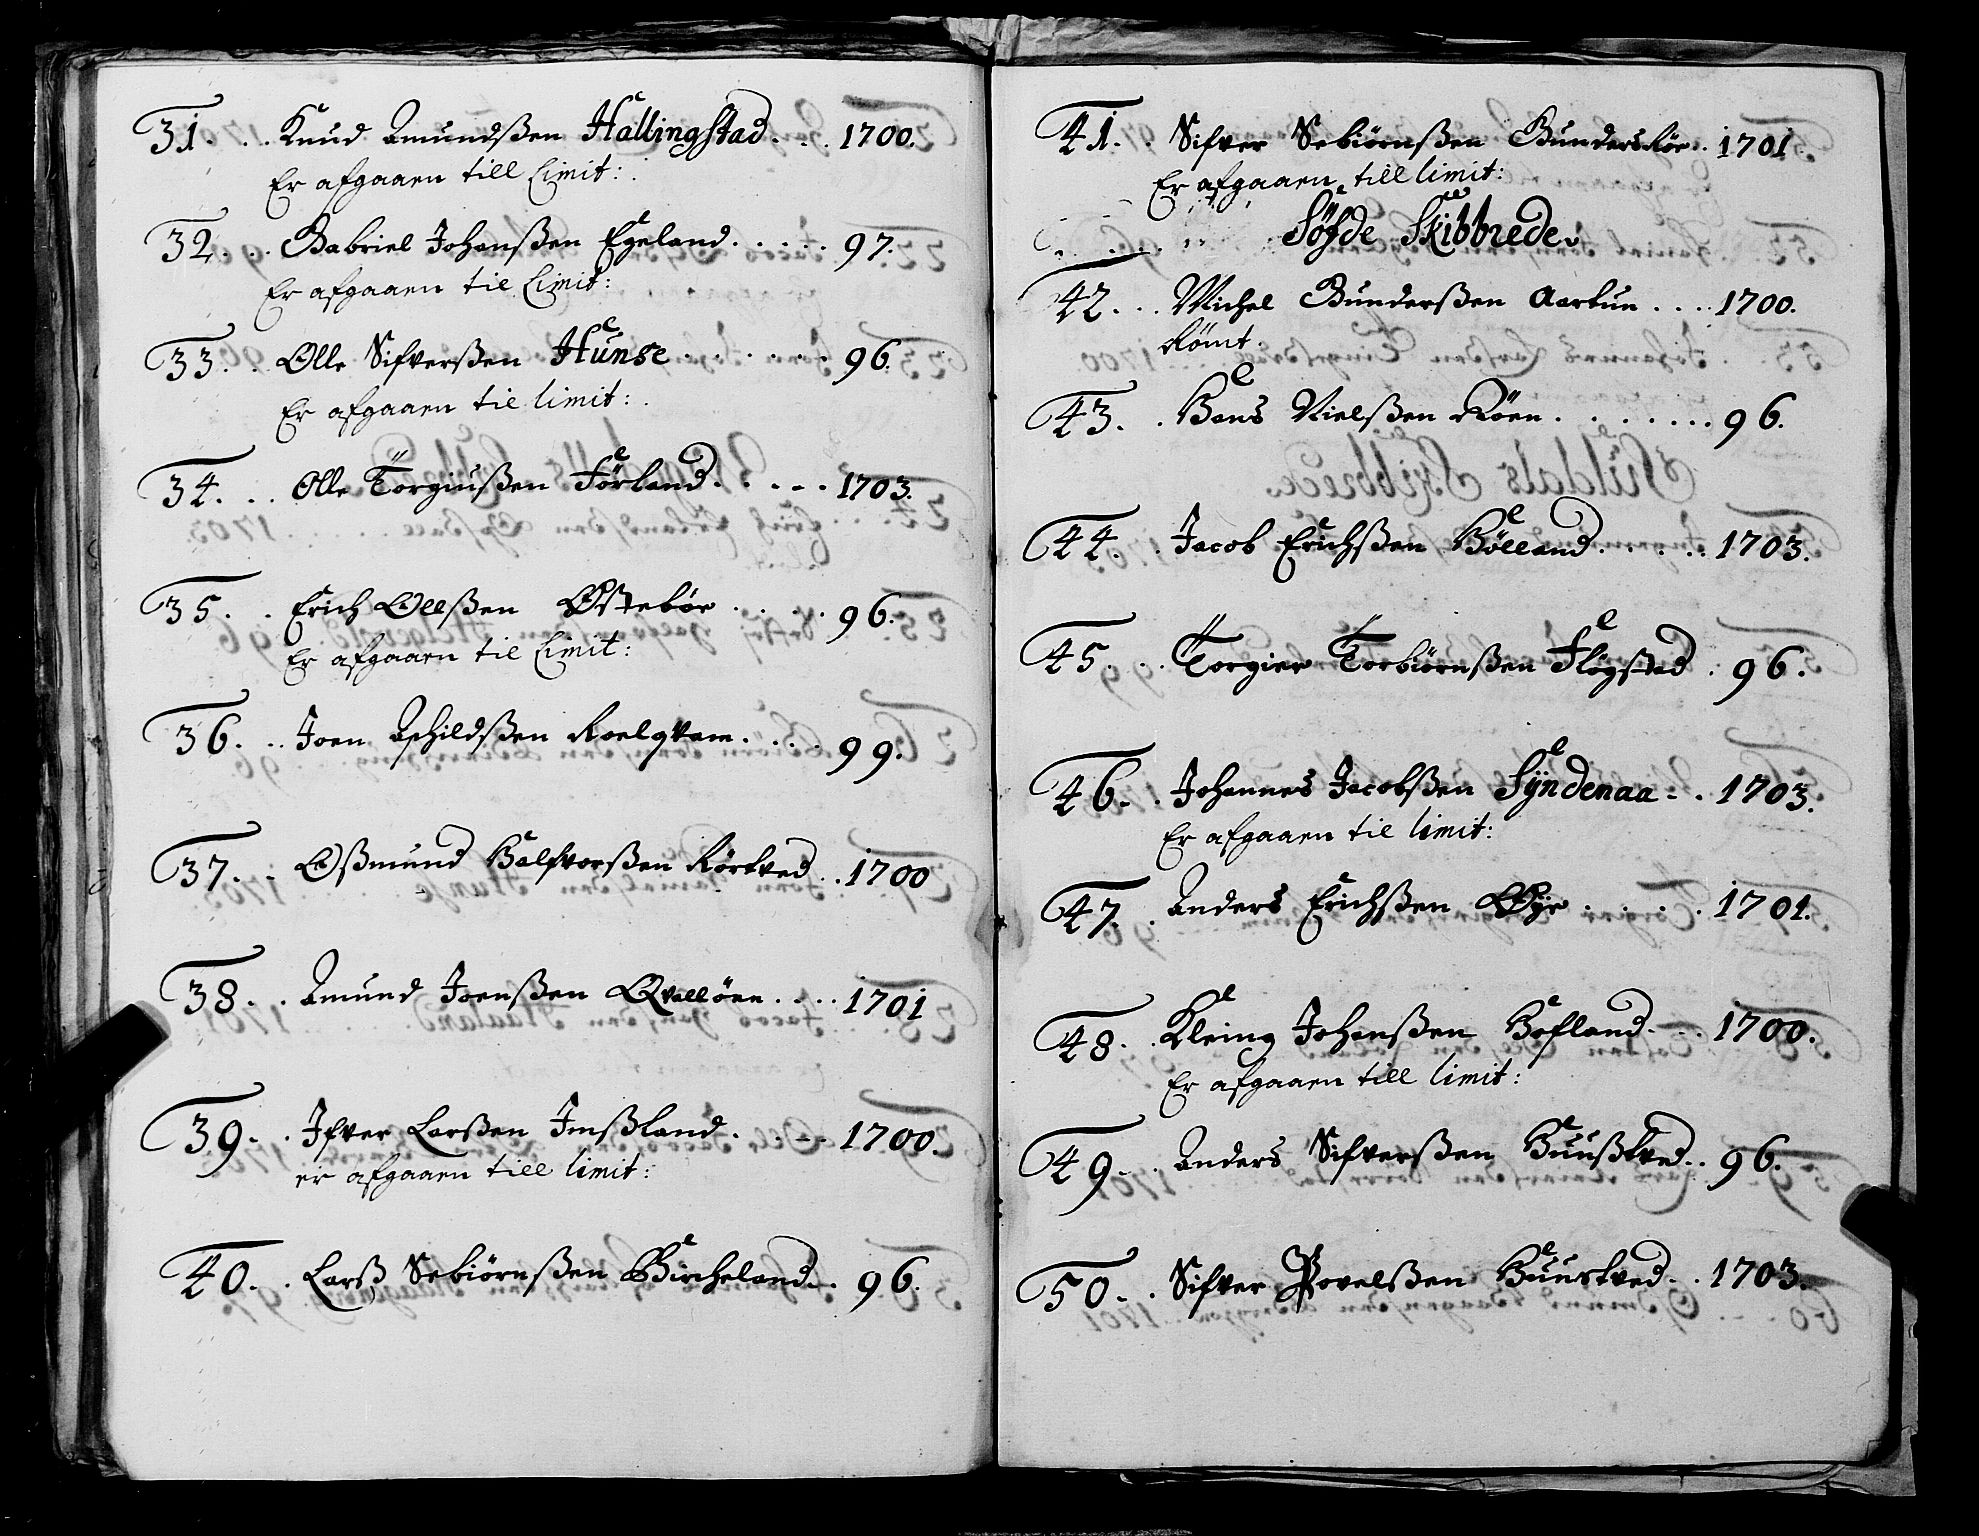 31. . . Knud Amundsßen Hallingstad. . . 1700.
Er afgaaen till Limit:
32. . . Gabriel Johanßen Egeland. . . . . 97.
Er afgaaen til Limit:
33. . Olle Sifverßen Hunse . . . . . . 96.
Er afgaaen til limit:
34. . . Olle Torgiußen Förland. . . . . 1703.
35. . . Erich Ollßen Östebör . . . . 96.
Er afgaaen til Limit:
36. . . Joen Aschildßen Roelqvam. . . . 99.
37. . . Oßmund Halfvorßen Rörtved . . 1700
38. . . Amund Joenßen Qvallöen . . . . 1701
39. . . Ifver Larßen Imßland. . . . . 1700.
er afgaaen till limit:
40. . . Larß Sebiörnßen Bircheland. . 96.
41. . . Sifver Sebiörnßen . . 1701
Er afgaaen till limit:
Söfde Skibbrede
42. . . Michel Gunderßen Aartun . . . . 1700.
Römt.
43. . Hans Nielßen Röen. . . . . . . 96.
44. . . Jacob Erichßen Hölland. . . . . 1703.
45. . . Torgier Torbiörnßen Flögstad . 96.
46. . Johannes Jacobßen Syndenaa . . 1703.
Er afgaaen til limit:
47. . Anders Erichßen Øye . . . . . 1701.
48. . . Kleing Johanßen Hofland. . . 1700.
Er afgaaen till limit:
49. . . Anders Sifverßen Huußtved. . 96.
50. . . Sifver Povelßen Huustved. . 1703.